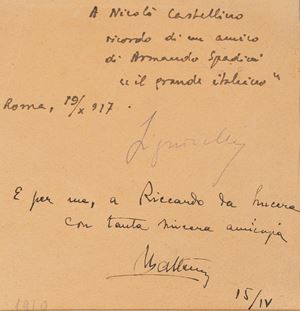 A Nicolò Castellino
ricordo di un amico
di Armando Spadini
"il grande italiano"
Roma, 19/X 917.
E per me, a Riccardo da
con tanta sincera amicizia
15/IV
1910